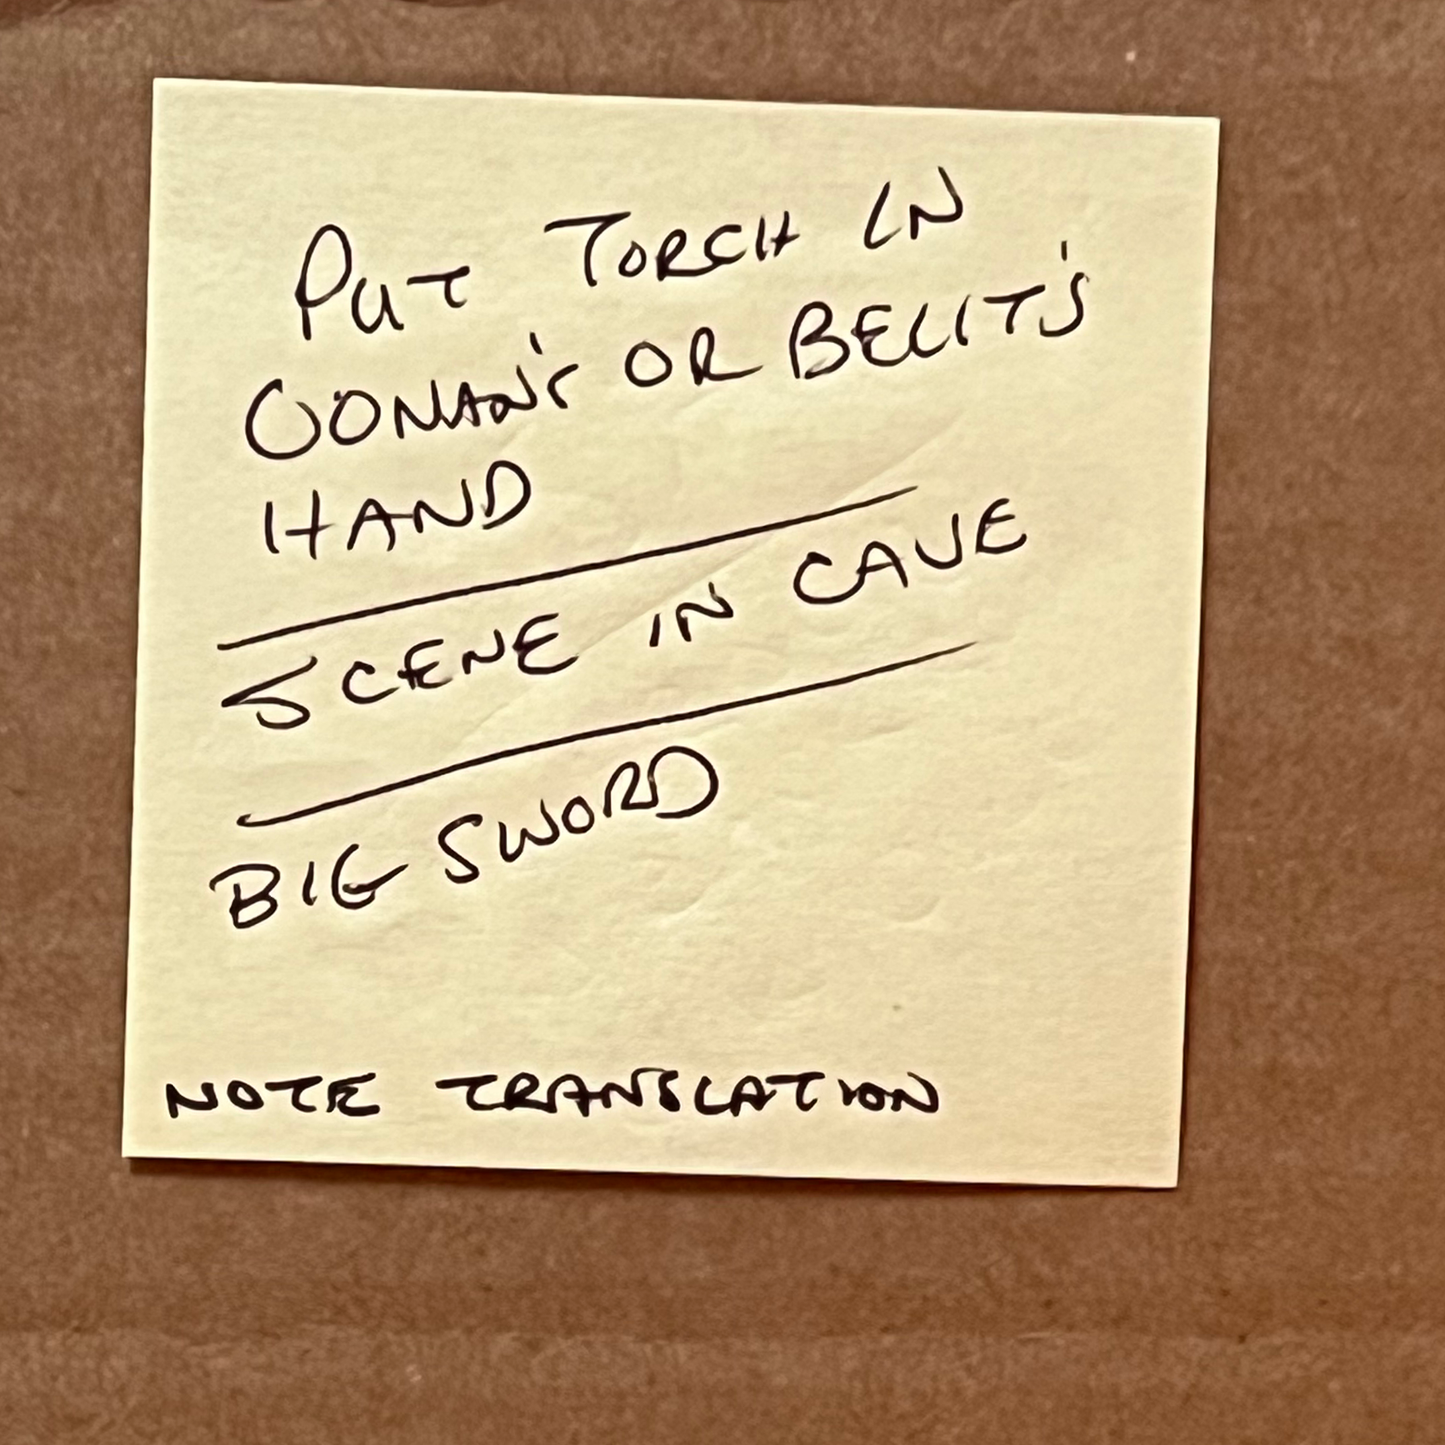 PUT TORCH IN
CONAN'S OR BELIT'S
HAND
SCENE IN CAVE
BIG SWORD
NOTE TRANSLATION